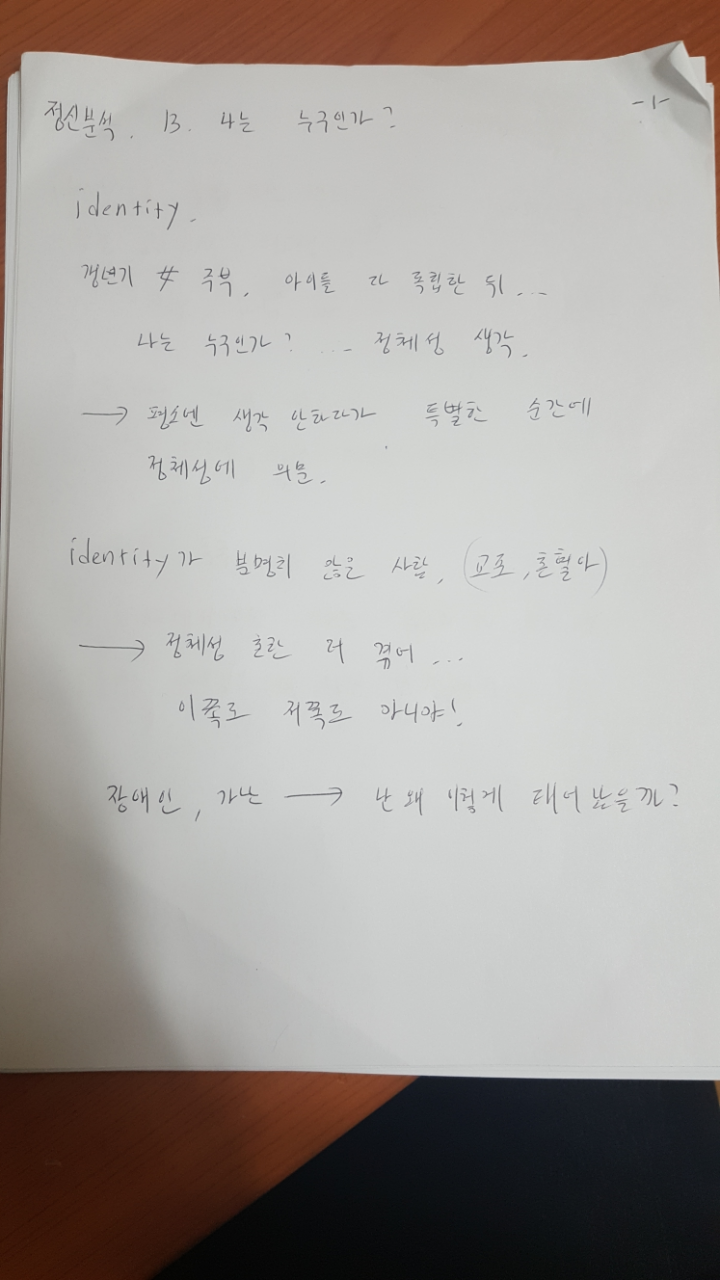 정신분석. 13. 나는 누구인가?
-1-
identity.
갱년기 # 주부, 아이들 다 독립한 뒤...
나는 누구인가? ... 정체성 생각.
→ 평소엔 생각 안하다가 특별한 순간에
정체성에 의문.
identity가 분명히 않은 사람, (교포, 혼혈아)
→ 정체성 혼란 더 겪어...
이쪽도 저쪽도 아니야!
장애인, 가난 → 난 왜 이렇게 태어났을까?